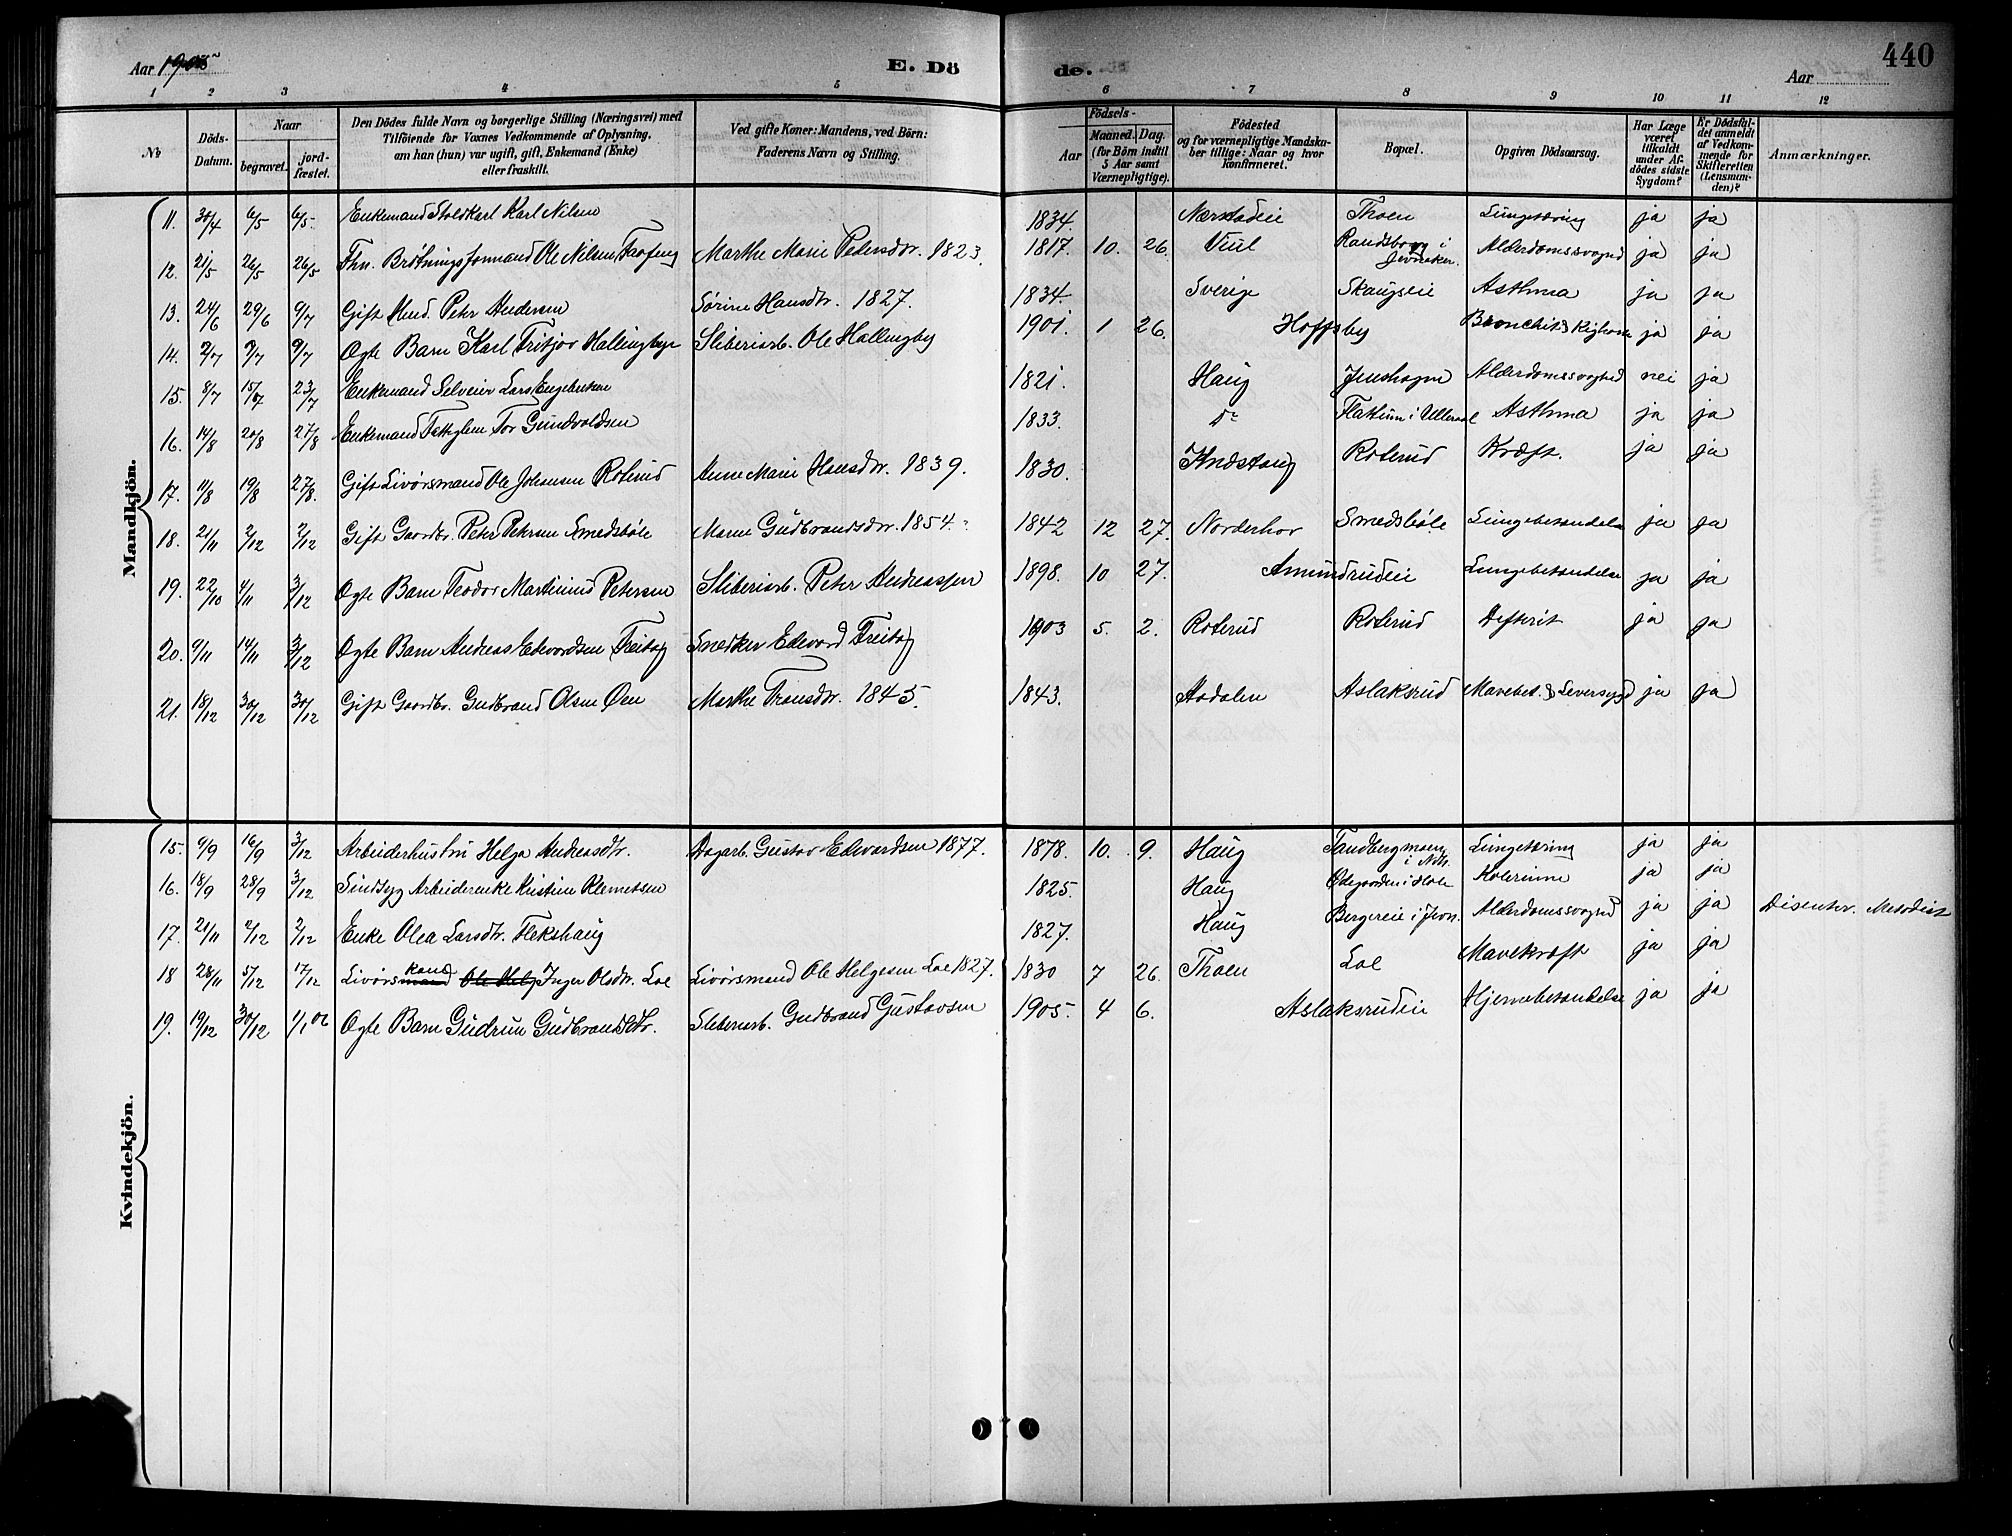 Aar 1905
E. Dö
de.
Aar
440
1 2 3 4 5 6 7 8 9 10 11 12
№
Döds-Datum.
Naar
begravet.
jord-fæstet.
Den Dödes fulde Navn og borgerlige Stilling (Næringsvei) med
Tilföiende for Voxnes Vedkommende af Oplysning,
om han (hun) var ugift, gift, Enkemand (Enke)
eller fraskilt.
Ved gifte Koner: Mandens, ved Börn:
Faderens Navn og Stilling.
Födsels-
Aar
Maaned. Dag.
(for Börn indtil
5 Aar samt
Værnepligtige).
Födested
og for værnepligtige Mandska-
ber tillige: Naar og hvor
konfirmeret.
Bopæl.
Opgiven Dödsaarsag.
Har Læge
været
tilkaldt
under Af-
dödes sidste
Sygdom?
Er Dödsfal-
det anmeldt
af Vedkom-
mende for
Skifteretten
(Lensman-
den)?
Anmærkninger.
Mandkjön.
11. 30/4 6/5 6/5. Enkemand Stoldkarl Karl Nilsen 1834. Thoen Lungetæring ja ja
12. 21/5 26/5 26/5 Fhn. Brötningsformand Ole Nilsen Marthe Marie Petersdtr. 1823. 1817. 10. 26. Viul Randsborg i Jevnaker. Alderdomssvaghed ja ja
13. 24/6 29/6 9/7 Gift Petr Andersen Sörine Hansdtr. 1827. 1834. Sverige Skaugseie Asthma ja ja
14. 2/7 9/7 9/7 Ægte Barn Karl Fritjov Hallingbye Sliberiarb. Ole Hallingby 1901. 1 26. Hoffsby Bronchit & Kighoste ja ja
15. 8/7 15/7 23/7 Enkemand Selveier Lars Engebretsen 1821. Haug Jenshagen Alderdomssvaghed nei ja
16. 14/8 20/8 27/8 Enkemand Fattiglem Tor Gundvoldsen 1833. Do Flattum i Ulleraal Asthma ja ja
17. 11/8 19/8 27/8. Gift Livörsmand Ole Johansen Roterud Anne Marie Hansdtr. 1839. 1830. Roterud Kræft. ja ja
18. 21/11 2/12 2/12 Gift Gaardbr. Peter Petersen Smedsböle Maren Gudbrandsdtr. 1854. 1842 12 27. Norderhov Smedsböle Lungebetændelse ja ja
19. 22/10 4/11 3/12 Ægte Barn Teodor Martinius Petersen Sliberiarb. Peter Andreassen 1898. 10 27. Amundrudeie Lungebetændelse ja ja
20. 9/11 14/11 3/12 Ægte Barn Andreas Edvardsen Freitag Snedker Edvard Freitag 1903 5. 2. Roterud Roterud Defterit ja ja
21. 18/12 30/12 30/12 Gift Gaardbr. Gudbrand Olsen Øen Marthe Fransdtr. 1845. 1843. Aadalen Aslaksrud Mavebet. & Leversygd ja ja
Kvindekjön.
15. 9/9 16/9 3/12 Arbeiderhustru Helga Andreasdtr. Dagarb. Gustav Edvardsen 1877. 1878. 10. 9. Haug Tandbergmoen i Ndh. Lungetæring ja ja
16. 18/9 28/9 3/12 Sindssyg Arbeiderenke Kristine Klemetsen 1825. Haug Ødegaarden i Hole Kolerinne ja ja
17. 21/11 2/12 2/12 Enke Olea Larsdtr. Flekshaug 1827. Haug Bergereie i Jevn. Alderdomssvaghed ja ja Disenter. Metodist
18 28/11 5/12 17/12 Livörskone Inger Olsdtr. Loe Livörsmand Ole Helgesen Loe 1827. 1830 7 26. Thoen Loe Mavekræft ja ja
19. 19/12 30/12 1/1 06 Ægte Barn Gudrun Gudbrandsdtr. Sliberiarb. Gudbrand Gustavsen 1905. 4 6. Aslaksrudeie Hjernebetændelse ja ja